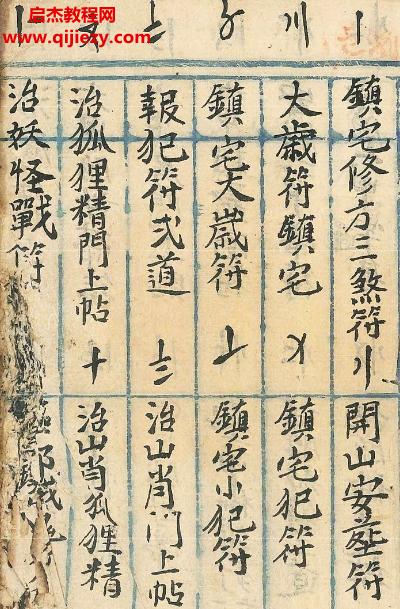 启杰教程网
www.qijiezy.com
〡
鎮宅修方三煞符
〢
開山安符
〣
大歲符鎮宅
〤
鎮宅犯符
〥
鎮宅大歲符
〦
鎮宅小犯符
〧
報犯符弍道
〨
治山肖门上帖
〩
治狐狸精門上帖
十
治山肖狐狸精
治妖怪戰符